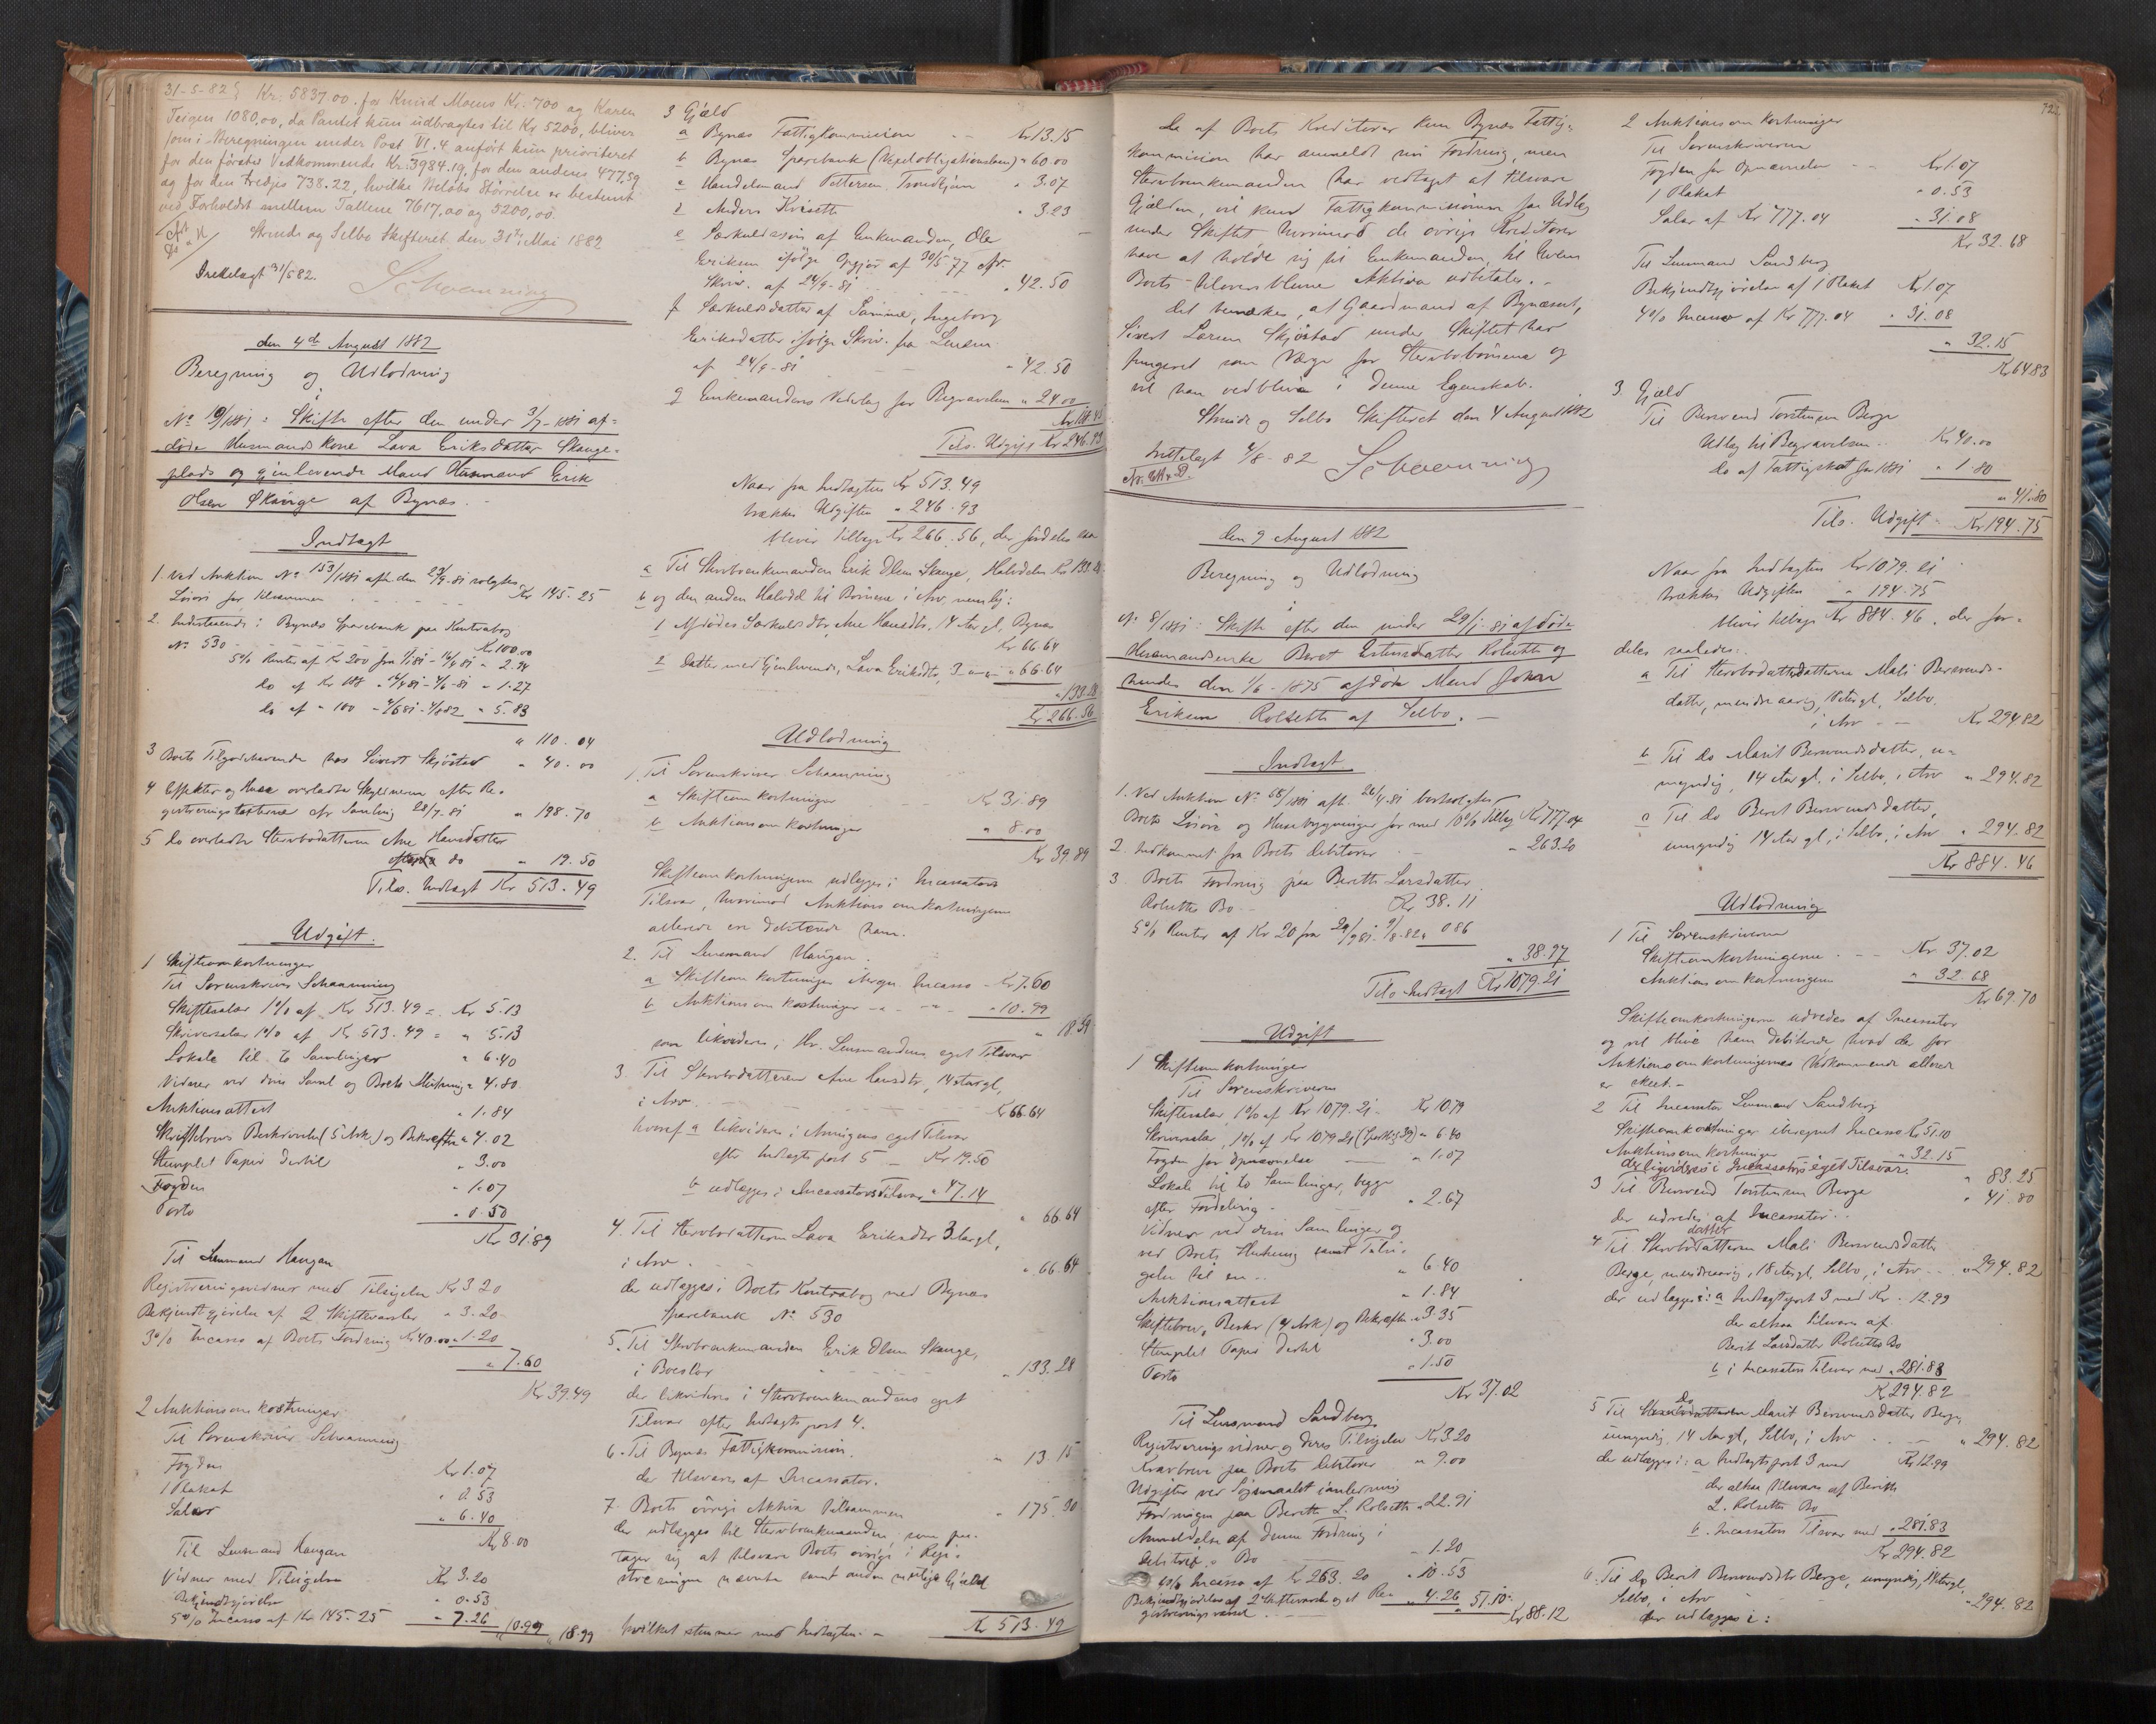 31-5-82 Kr. 5837.00. for Knud Moens Kr. 700 og Karen
Teigen 1080,00, da Pantet kun udbragtes til Kr 5200, bliver
som i Beregningen under Post VI.4. anført kun prioriteret
for den første Vedkommende Kr. 3984.19, for den andens 477,59
og for den tredjes 738.22, hvilke Beløbs Størrelse er bestemt
ved Forholdet mellem Tallene 7617,00 og 5200,00.
Strinde og Selbo Skifteret den 31te Mai 1882
Irettelagt 31/5 82.
Schaanning
den 4de August 1882
Beregning og Udlodning
No 19/1881: Skifte efter den under 3/7-1881 af-
døde Husmandskone Lava Eriksdatter Skange-
plads og gjenlevende Mand Husmand Erik
Olsen Skange af Bynæs.
Indtægt
1. Ved Auktion No 153/1881 afh. den 23/9-81 solgtes
Løsøre for tilsammen Kr 145.25
2. Indestaaende i Bynæs Sparebank paa Kontrabog
No 530 Kr 100.00
5% Rente af Kr 200 fra 1/1 81 - 16/4 81 " 2.94
do af Kr 188 " 16/4 81 - 4/6-81 " 1.27
do af " 100 " 4/6 81 - 4/8 82 " 5.83
" 110.04
3 Boets Tilgodehavende hos Sivert Skjøstad " 40.00
4 Effekter og Huse overladte Skylderne efter Re-
gistreringstaxterne efter Samling 28/7-81 " 198.70
5 Do overladte Stervbodatteren Ane Hansdatter
efter do " 19.50
Tils. Indtægt Kr 513.49
Udgift.
1 Skifteomkostninger
Til Sorenskriver Schaanning
Skiftesalær 1% af Kr 513.49 = Kr 5.13
Skriversalær 1% af Kr 513.49 = " 5.13
Lokale til 6 Samlinger " 6.40
Vidner ved disse Saml og Boets Slutning " 4.80
Auktionsattest " 1.84
Skiftebrevs Beskrivelse (5 Ark) og Bekræftn " 4.02
Stemplet Papir dertil " 3.00
Fogden " 1.07
Porto " 0.50
Kr 31.89
Til Lensmand Haugan
Registreringsvidner med Tilsigelse Kr 3.20
Bekjendtgjørelse af 2 Skiftevarsler " 3.20
3% Incasso af Boets Fordring Kr 40.00 " 1.20
" 7.60
Kr 39.49
2 Auktionsomkostninger
Til Sorenskriver Schaanning
Fogden Kr 1.07
1 Plakat " 0.53
Salær " 6.40
Kr 8.00
Til Lensmand Haugan
Vidner med Tilsigelse Kr 3.20
Bekjendtgjørelse " 0.53
5% Incasso af Kr 145.25 " 7.26 " 10.99 " 18.99
3 Gjæld
a Bynæs Fattigkommission Kr 13.15
b Bynæs Sparebank (Vexelobligationslaan) " 60.00
c Handelsmand Pettersen Trondhjem " 3.07
d Anders Kvisetti " 3.23
e Særkuldssøn af Enkemanden, Ole
Eriksen ifølge Opgjør af 30/5 77 efr.
Skriv. af 24/9-81 " 42.50
f Særkuldsdatter af Samme, Ingeborg
Eriksdatter ifølge Skriv. fra Lensm
af 24/9-81 " 42.50
g Enkemandens Vederlag for Begravelsen " 24.00
Kr 188.45
Tils. Udgift Kr 246.93
Naar fra Indtægten Kr 513.49
trækkes Udgiften " 246.93
bliver tilbage Kr 266.56, der fordeles saa
a Til Stervboenkemanden Erik Olsen Skange, Halvdelen Kr 133.28
b og den anden Halvdel til Børnene i Arv, nemlig:
1 Afdødes Særkuldsdtr, Ane Hansdtr, 14 Aar gl, Bynæs
Kr 66.64
2 Datter med Gjenlevende, Lava Eriksdtr, 3 " " 66.64
" 133.28
Kr 266.56
Udlodning
1. Til Sorenskriver Schaanning
a Skifteomkostninger Kr 31.89
b Auktionsomkostninger " 8.00
Kr 39.89
Skifteomkostningerne udlægges i Incassators
Tilsvar, hvorimod Auktionsomkostningerne
allerede ere debiterede ham.
2. Til Lensmand Haugan.
a Skifteomkostninger iberegn. Incasso Kr 7.60
b Auktionsomkostninger " 10.99
" 18.59
som likvideres i Hr. Lensmandens eget Tilsvar
3. Til Stervbodatteren Ane Hansdtr, 14 Aar gl,
i Arv Kr 66.64
hvoraf a likvideres i Arvingens eget Tilsvar
efter Indtægts post 5 Kr 19.50
b udlægges i Incassators Tilsvar " 47.14
" 66.64
4. Til Stervbodatteren Lava Eriksdtr 3 Aar gl,
i Arv " 66.64
der udlægges i Boets Kontrabog med Bynæs
Sparebank No 530
5. Til Stervboenkemanden Erik Olsen Skange,
i Boeslod " 133.28
der likvideres i Stervboenkemandens eget
Tilsvar efter Indtægts post 4.
6. Til Bynæs Fattigkommission " 13.15
der tilsvares af Incassator.
7. Boets øvrige Aktiva tilsammen " 175.30
der udlægges til Stervboenkemanden, som paa-
tager sig at tilsvare Boets øvrige i Regi-
streringen nævnte samt anden mulige Gjæld
Kr 513.49
hvilket stemmer med Indtægten.
Da af Boets Kreditorer kun Bynæs Fattig-
kommission har anmeldt sin Fordring, men
Stervboenkemanden har vedtaget at tilsvare
Gjælden, vil kun Fattigkommissionen faa Udlæg
under Skiftet, hvorimod de øvrige Kreditorer
have at holde sig til Enkemanden, til hvem
Boets tiloversblevne Aktiva udbetales.
Det bemærkes, at Gaardmand af Bynæsset,
Sivert Larsen Skjøstad under Skiftet har
fungeret som Værge for Stervbobørnene og
vil han vedblive i denne Egenskab.
Strinde og Selbo Skifteret den 4 August 1882
Irettelagt 4/8-82 Schaanning
den 9 August 1882
Beregning og Udlodning
i
No 8/1881: Skifte efter den under 29/1-81 afdøde
Husmandsenke Beret Estensdatter Rolseth og
hendes den 1/6-1875 afdøde Mand John
Eriksen Rolseth af Selbo.
Indtægt
1. Ved Auktion No 68/1881 afh. 26/4-81 bortsolgtes
Boets Løsøre og Husebygninger for med 10% Tillæg Kr 777.04
2. Indkommet fra Boets Debitorer " 263.20
3 Boets Fordring paa Berith Larsdatter
Rolseths Bo Kr 38.11
5% Renter af Kr 20 fra 29/9 81 - 9/8-82 " 0 86
" 38.97
Tils. Indtægt Kr 1079.21
Udgift
1 Skifteomkostninger
Til Sorenskriveren
Skiftesalær, 1% af Kr 1079.21 Kr 10 79
Skriversalær, 1% af Kr 1079.21 (Sportl. § 39) " 6.40
Fogden for Opnævnelse " 1.07
Lokale til to Samlinger, begge
efter Fordeling " 2.67
Vidner ved disse Samlinger og
ved Boets Slutning samt Tilsi-
gelse til en " 6.40
Auktionsattest " 1.84
Skiftebrev, Beskr (4 Ark) og Bekræftn " 3.35
Stemplet Papir dertil " 3.00
Porto " 1.50
Kr 37.02
Til Lensmand Sandberg
Registreringsvidner og deres Tilsigelse Kr 3.20
Kravbreve paa Boets Debitorer " 9.00
Udgifter ved Søgsmaalet i anledning
Fordringen paa Berith L. Rolseth " 22.91
Anmeldelse af denne Fordring i
Debitricens Bo " 1.20
4% Incasso af Kr 263.20 " 10.53
Bekjendtgjørelse af 2 Skiftevarsler og et Re- " 4.26 " 51.10
gistreringsvarsel Kr 88.12
722
2 Auktionsomkostninger
Til Sorenskriveren
Fogden for Opnævnelse Kr 1.07
1 Plakat " 0.53
Salær af Kr 777.04 " 31.08
Kr 32.68
Til Lensmand Sandberg
Bekjendtgjørelse af 1 Plakat Kr 1.07
4% Incasso af Kr 777.04 " 31.08
" 32.15
Kr 64 83
3. Gjæld
Til Bersvend Torstensen Berge
Udlæg til Begravelsen Kr 40.00
Do af Fattigskat for 1881 " 1.80
" 41.80
Tils. Udgift Kr 194.75
Naar fra Indtægten Kr 1079.21
trækkes Udgiften " 194.75
bliver tilbage Kr 884.46, der for-
deles saaledes:
a Til Stervbodatterdatteren Mali Bersvends-
datter, mindreaarig, 18 Aar gl, Selbo,
i Arv Kr 294 82
b Til do Marit Bersvendsdatter, u-
myndig, 14 Aar gl, i Selbo, i Arv " 294.82
c Til do Beret Bersvendsdatter,
umyndig 14 Aar gl, i Selbo, i Arv " 294.82
Kr 884.46
Udlodning
1 Til Sorenskriveren
Skifteomkostningerne Kr 37.02
Auktionsomkostningerne " 32.68
Kr 69.70
Skifteomkostningerne udredes af Incassator
og vil blive ham debiterede, hvad der for
Auktionsomkostningernes Vedkommende allerede
er skeet.
2 Til Incassator Lensmand Sandberg
Skifteomkostninger iberegnet Incasso Kr 51.10
Auktionsomkostninger " 32.15
der ligvideres i Incassators eget Tilsvar. " 83.25
3 Til Bersvend Torstensen Berge " 41.80
der udredes af Incassator.
4 Til Stervbodatterdatteren Mali Bersvendsdatter
Berge, mindreaarig, 18 Aar gl, Selbo, i Arv " 294.82
der udlægges i: a Indtægts post 3 med Kr 12.99
der altsaa tilsvares af
Berit Larsdatter Rolseths Bo
b i Incassators Tilsvar med " 281.83
Kr 294.82
5 Til Do Marit Bersvendsdatter Berge
umyndig 14 Aar gl, Selbo, i Arv " 294.82
der udlægges i: a Indtægts post 3 med Kr 12.99
der altsaa tilsvares af Berith
L. Rolseths Bo
b. Incassators Tilsvar med " 281.83
Kr 294.82
6. Til Do Berit Bersvendsdtr Berge, umyndig, 14 Aar gl,
Selbo, i Arv " 294.82
der udlægges i: